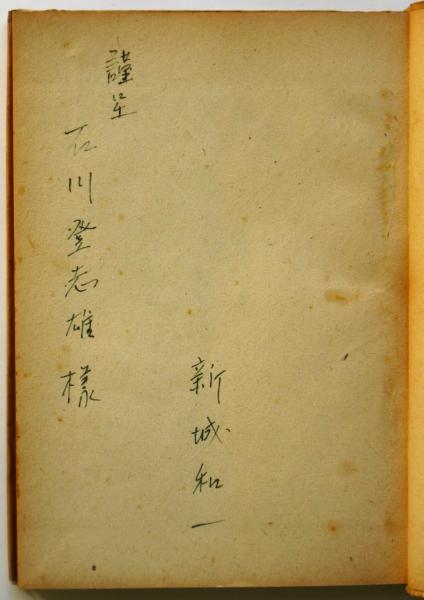 謹呈
石川登志雄様
新城和一